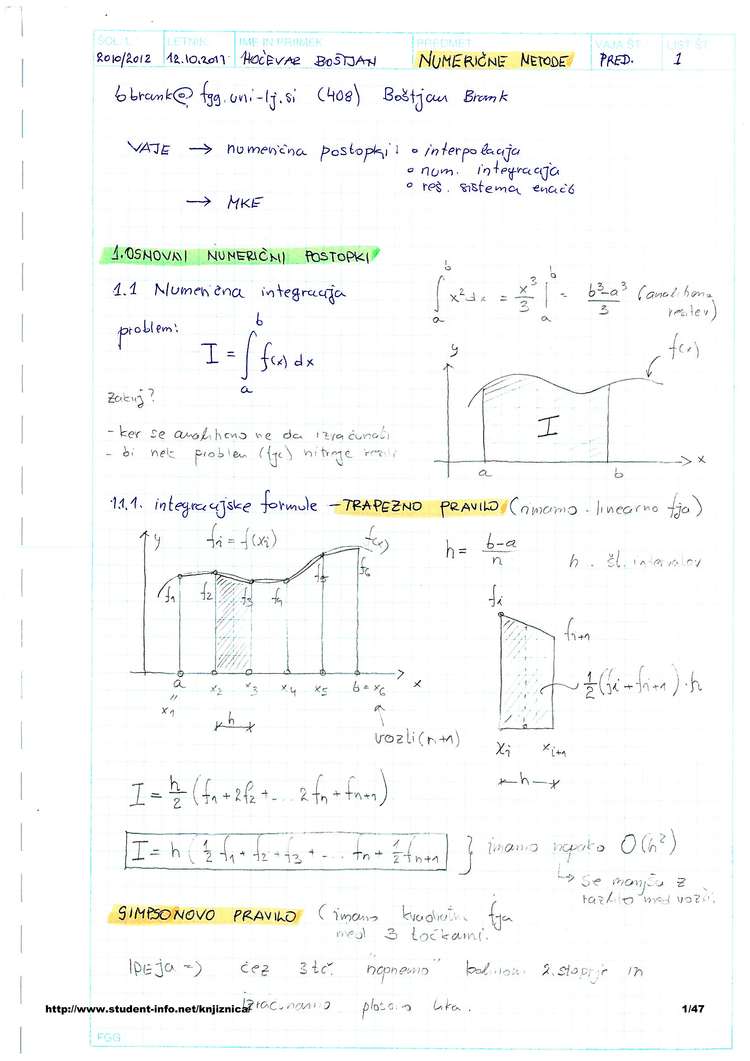 ŠOL. L. LETNIK IME IN PRIIMEK PREDMET VAJA ŠT. LIST ŠT.
2010/2012 12.10.2011 HOČEVAR BOŠTJAN NUMERIČNE METODE PRED. 1
bbrank@fgg.uni-lj.si (408) Boštjan Brank
VAJE → numerična postopki: • interpolacija
• num. integracija
• reš. sistema enačb
→ MKE
1. OSNOVNI NUMERIČNI POSTOPKI
1.1 Numerična integracija
∫_a^b x² dx = x³/3 |_a^b = (b³-a³)/3 (analitična rešitev)
problem:
I = ∫_a^b f(x) dx
y f(x)
I
a b x
zakaj?
- ker se analitično ne da izračunati
- bi nek problem (fje) nitroje
1.1.1. integracijske formule - TRAPEZNO PRAVILO (imamo linearno fja)
y fi = f(xi) f(x)
f1 f2 f3 f4 f5 f6
h = (b-a)/n n št. intervalov
a x2 x3 x4 x5 b = x6 x
" x1
h
vozli (n+1)
fi fi+1
½(fi + fi+1)·h
xi xi+1
h
I = h/2 (f1 + 2f2 + ... 2fn + fn+1)
I = h (½ f1 + f2 + f3 + ... fn + ½ fn+1) } imamo napako O(h²)
↳ se manjša z
razdaljo med vozli.
SIMPSONOVO PRAVILO (imamo kvadratno fja
med 3 točkami.
IDEJA => čez 3 tč. "napnemo" 2. stopnje in
izračunamo lika.
http://www.student-info.net/knjiznica/ 1/47
FGG